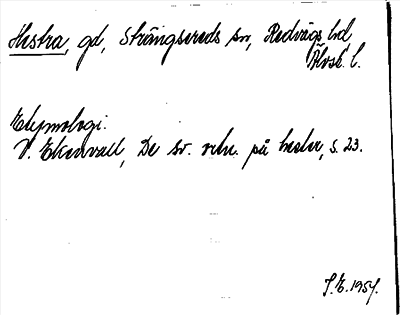 Hestra, gd, Strängsereds sn, Redvägs hd
Älvsb. l.
Etymologi.
V. Ekenvall, De sv. ortn. på hester, s. 23.
S.E. 1954.